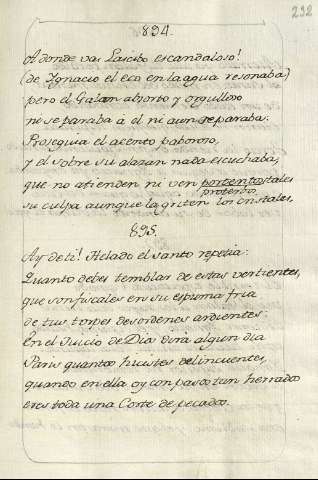 232
894.
Adonde vas Lascibo escandaloso!
(de Ignacio el eco en la agua resonaba)
pero el Galan absorto y orgulloso
no se paraba à el ni aun reparaba:
Proseguia el acento paboroso,
y el sobre su alazan nada escuchaba,
que no atienden ni ven portentos tales
protervos
su culpa aunque la griten los cristales,
895.
Ay de ti! Helado el santo repetia:
Quanto debes temblar de estas vertientes,
que son fiscales en su espuma fria
de tus torpes desordenes ardientes:
En el Juicio de Dia dirà algun dia
Paris quantos huistes delinquentes,
quando en ella oy con pasos tan herrados
eres toda una Corte de pecados.